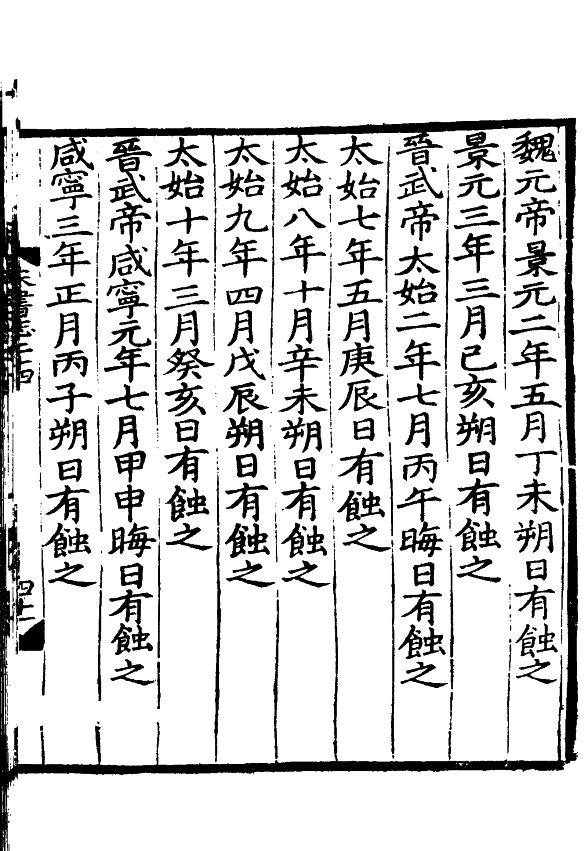 魏元帝景元二年五月丁未朔日有蝕之
景元三年三月己亥朔日有蝕之
晉武帝太始二年七月丙午晦日有蝕之
太始七年五月庚辰日有蝕之
太始八年十月辛未朔日有蝕之
太始九年四月戊辰朔日有蝕之
太始十年三月癸亥日有蝕之
晉武帝咸寧元年七月甲申晦日有蝕之
咸寧三年正月丙子朔日有蝕之